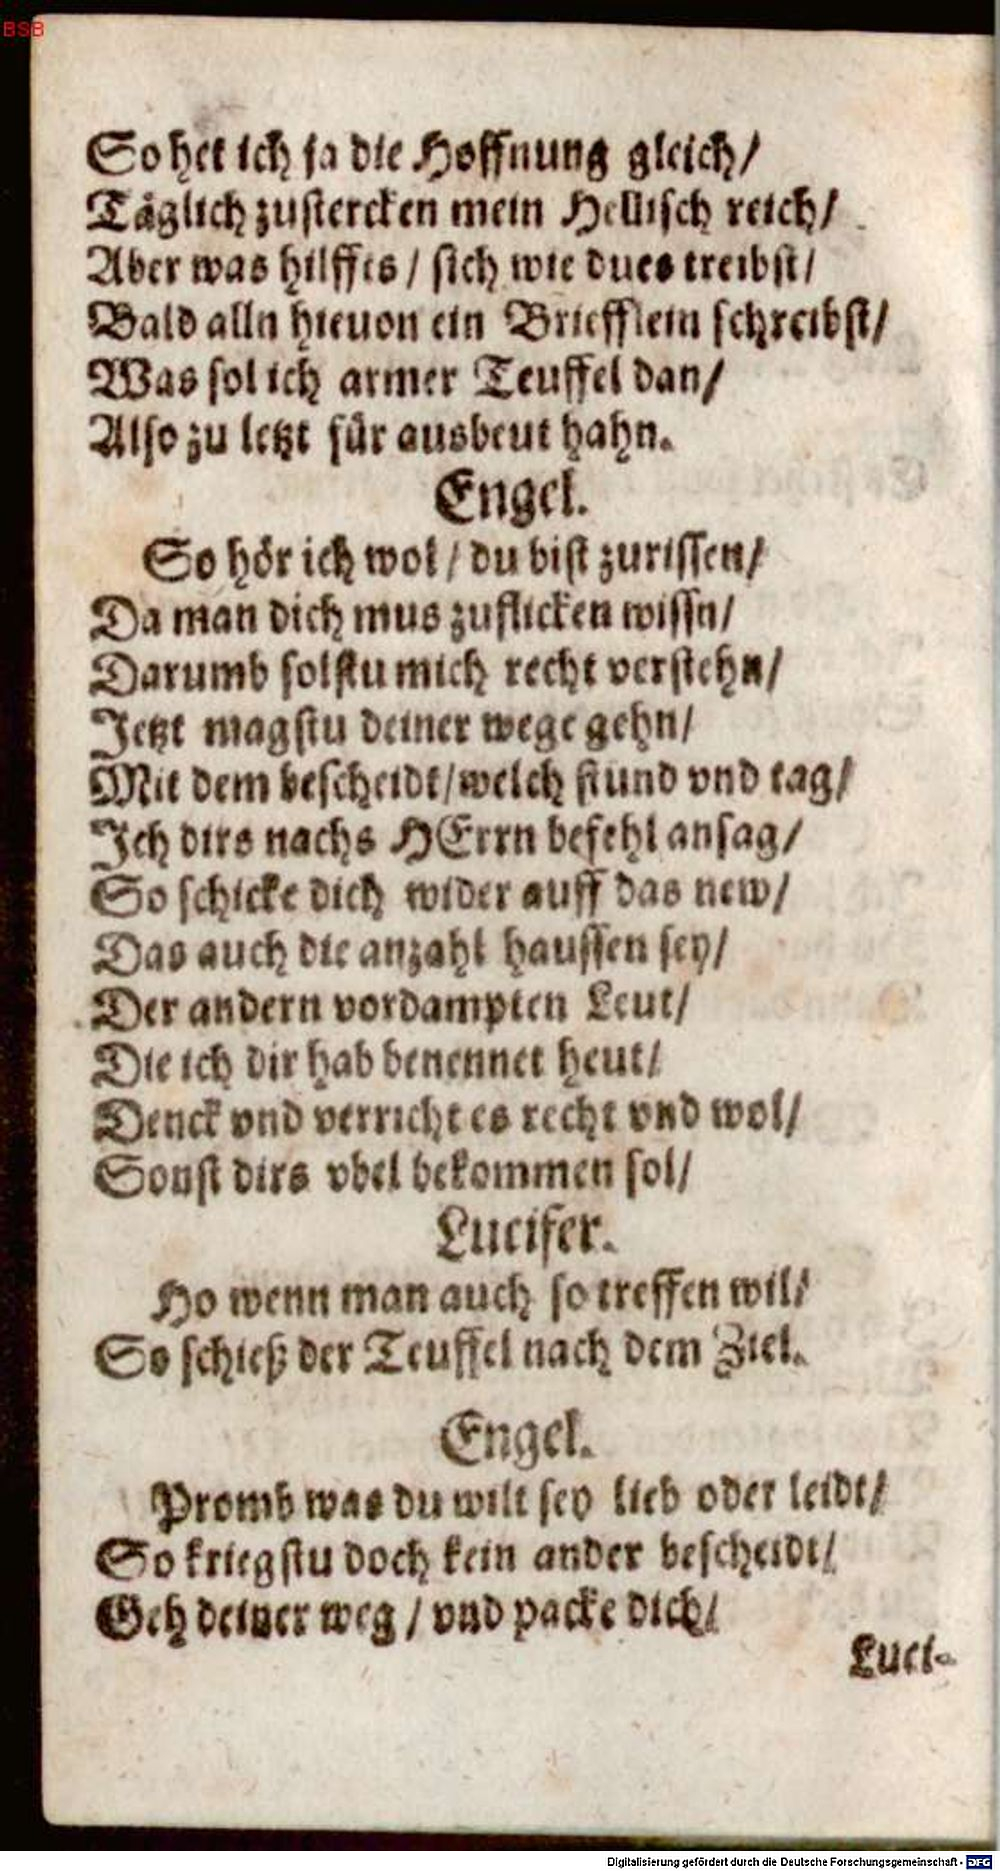 BSB
So het ich ja die Hoffnung gleich/
Täglich zustercken mein Hellisch reich/
Aber was hilffts / sich wie dues treibst/
Bald alln hieuon ein Briefflein schreibst/
Was sol ich armer Teuffel dan/
Also zu letzt für ausbeut hahn.
Engel.
So hör ich wol / du bist zurissen/
Da man dich mus zuflicken wissn/
Darumb solstu mich recht verstehn/
Jetzt magstu deiner wege gehn/
Mit dem bescheidt/welch stund vnd tag/
Ich dirs nachs HErrn befehl ansag/
So schicke dich wider auff das new/
Das auch die anzahl haussen sey/
Der andern vordampten Leut/
Die ich dir hab benennet heut/
Denck vnd verricht es recht vnd wol/
Sonst dirs vbel bekommen sol/
Lucifer.
Ho wenn man auch so treffen wil/
So schieß der Teuffel nach dem Ziel.
Engel.
Promb was du wilt sey lieb oder leidt/
So kriegstu doch kein ander bescheidt/
Geh deiner weg / vnd packe dich/
Luci-
Digitalisierung gefördert durch die Deutsche Forschungsgemeinschaft - DFG